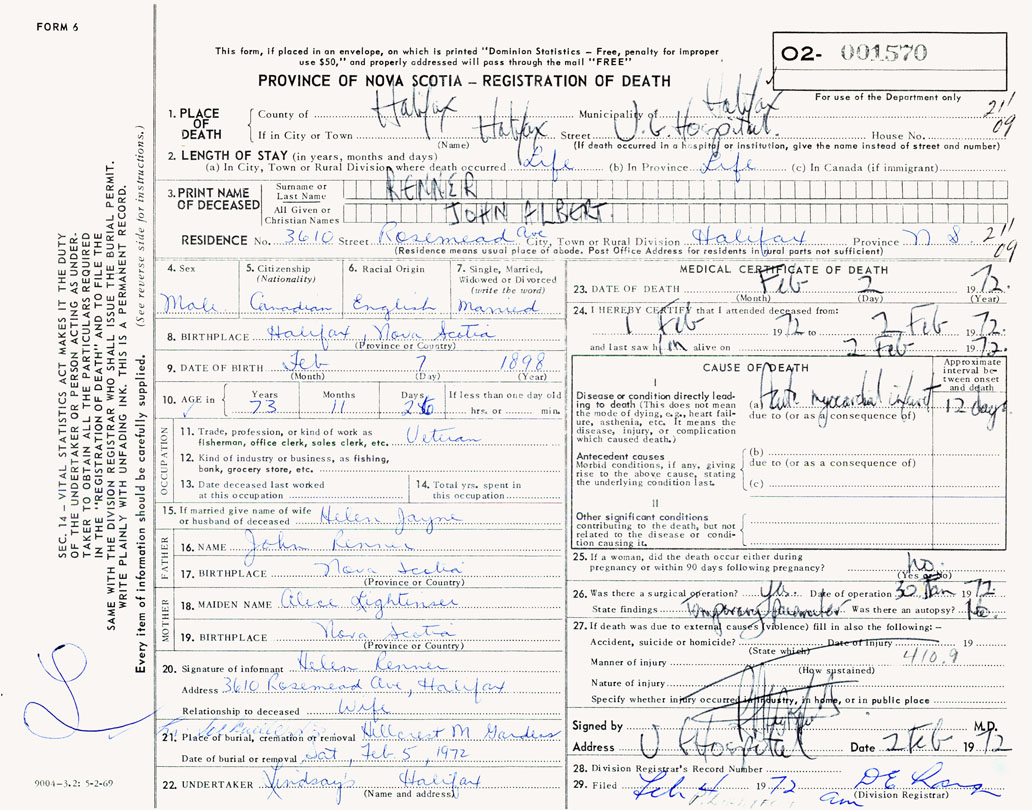 FORM 6
This form, if placed in an envelope, on which is printed "Dominion Statistics – Free, penalty for improper
use $50," and properly addressed will pass through the mail "FREE"
O2- 001570
PROVINCE OF NOVA SCOTIA – REGISTRATION OF DEATH
For use of the Department only
1. PLACE OF DEATH
County of Halifax Municipality of Halifax
21/09
If in City or Town Halifax Street V. G. Hospital. House No.
(Name) (If death occurred in a hospital or institution, give the name instead of street and number)
2. LENGTH OF STAY (in years, months and days)
(a) In City, Town or Rural Division where death occurred Life (b) In Province Life (c) In Canada (if immigrant)
3. PRINT NAME OF DECEASED
Surname or Last Name RENNER
All Given or Christian Names JOHN ALBERT
RESIDENCE No. 3610 Street Rosemead Ave City, Town or Rural Division Halifax Province N S 21/09
(Residence means usual place of abode. Post Office Address for residents in rural parts not sufficient)
4. Sex
Male
5. Citizenship
(Nationality)
Canadian
6. Racial Origin
English
7. Single, Married,
Widowed or Divorced
(write the word)
Married
8. BIRTHPLACE Halifax, Nova Scotia
(Province or Country)
9. DATE OF BIRTH Feb 7 1898
(Month) (Day) (Year)
10. AGE in Years Months Days If less than one day old
73 11 26 hrs. or min.
OCCUPATION
11. Trade, profession, or kind of work as
fisherman, office clerk, sales clerk, etc. Veteran
12. Kind of industry or business, as fishing,
bank, grocery store, etc.
13. Date deceased last worked
at this occupation
14. Total yrs. spent in
this occupation
15. If married give name of wife
or husband of deceased Helen Jayne
FATHER
16. NAME John Renner
17. BIRTHPLACE Nova Scotia
(Province or Country)
MOTHER
18. MAIDEN NAME Alice
19. BIRTHPLACE Nova Scotia
(Province or Country)
20. Signature of informant Helen Renner
Address 3610 Rosemead Ave, Halifax
Relationship to deceased Wife
21. Place of burial, cremation or removal Hillcrest M. Gardens
Date of burial or removal Sat, Feb 5, 1972
22. UNDERTAKER Lindsay's Halifax
(Name and address)
MEDICAL CERTIFICATE OF DEATH
23. DATE OF DEATH Feb 2 1972
(Month) (Day) (Year)
24. I HEREBY CERTIFY that I attended deceased from:
1 Feb 1972 to 2 Feb 1972
and last saw him alive on 2 Feb 1972
CAUSE OF DEATH
Approximate
interval be-
tween onset
and death
I
Disease or condition directly lead-
ing to death (This does not mean
the mode of dying, e.g., heart fail-
ure, asthenia, etc. It means the
disease, injury, or complication
which caused death.)
(a) Acute myocardial infarct 12 days
due to (or as a consequence of)
Antecedent causes
Morbid conditions, if any, giving
rise to the above cause, stating
the underlying condition last.
(b)
due to (or as a consequence of)
(c)
II
Other significant conditions
contributing to the death, but not
related to the disease or condi-
tion causing it.
25. If a woman, did the death occur either during
pregnancy or within 90 days following pregnancy? no.
(Yes or No)
26. Was there a surgical operation? yes. Date of operation 30 Jan 1972
State findings Temporary pacemaker Was there an autopsy? No.
27. If death was due to external causes (violence) fill in also the following: –
Accident, suicide or homicide? Date of injury 19
(State which) 410.9
Manner of injury
(How sustained)
Nature of injury
Specify whether injury occurred in industry, in home, or in public place
Signed by M.D.
Address V G Hospital Date 2 Feb 1972
28. Division Registrar's Record Number
29. Filed Feb 4 1972 D E
am (Division Registrar)
SEC. 14 – VITAL STATISTICS ACT MAKES IT THE DUTY
OF THE UNDERTAKER OR PERSON ACTING AS UNDER-
TAKER TO OBTAIN ALL THE PARTICULARS REQUIRED
IN THE "REGISTRATION OF DEATH" AND TO FILE THE
SAME WITH THE DIVISION REGISTRAR WHO SHALL ISSUE THE BURIAL PERMIT.
WRITE PLAINLY WITH UNFADING INK. THIS IS A PERMANENT RECORD.
Every item of information should be carefully supplied. (See reverse side for instructions.)
9004–3.2: 5-2-69